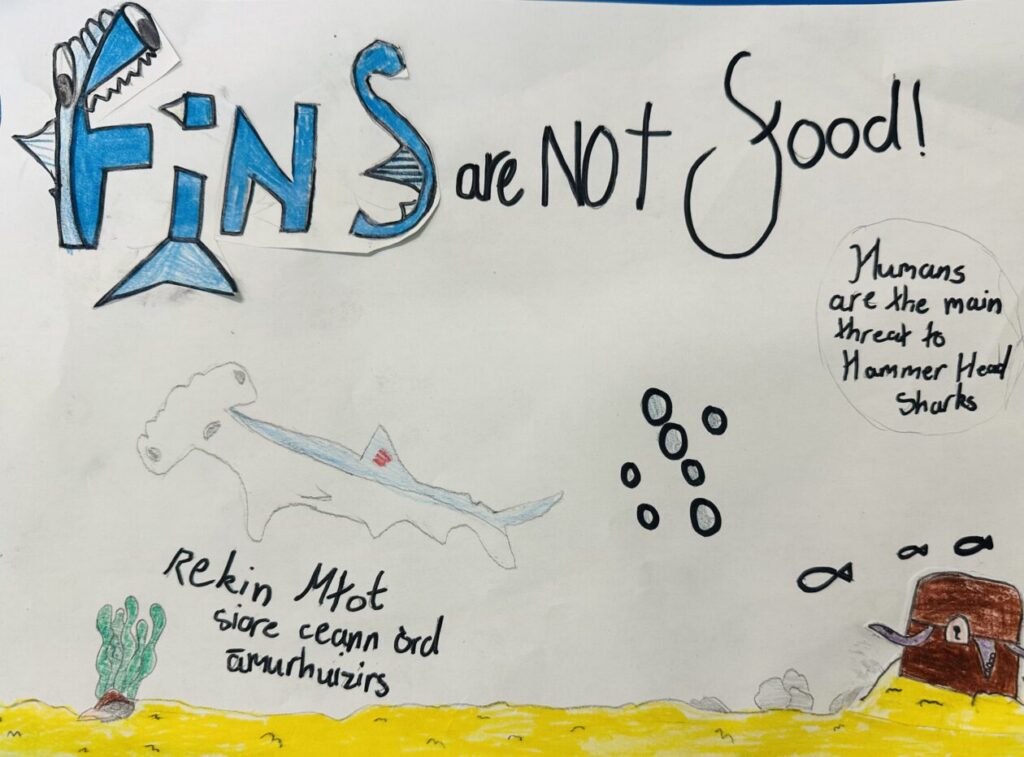 FiNS are NOT food!
Humans
are the main
threat to
Hammer Head
Sharks
Rekin Młot
siore ceann òrd
āmurhuizirs